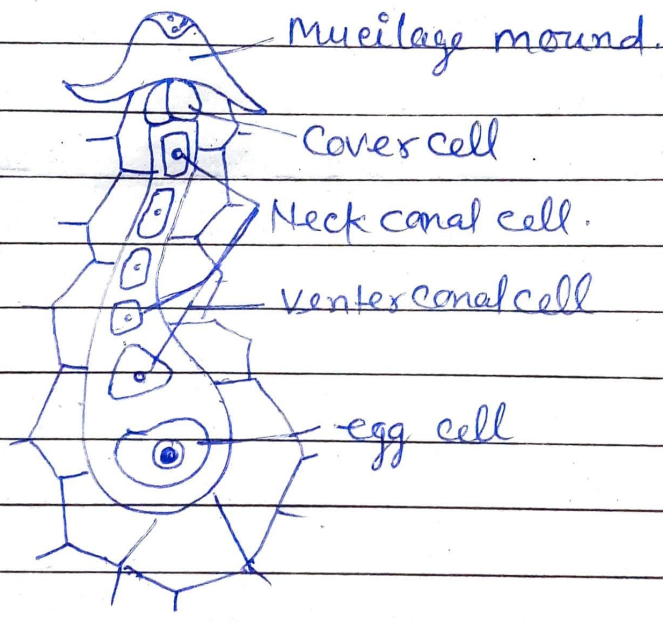 Mucilage mound.
Cover cell
Neck canal cell.
Venter canal cell
egg cell